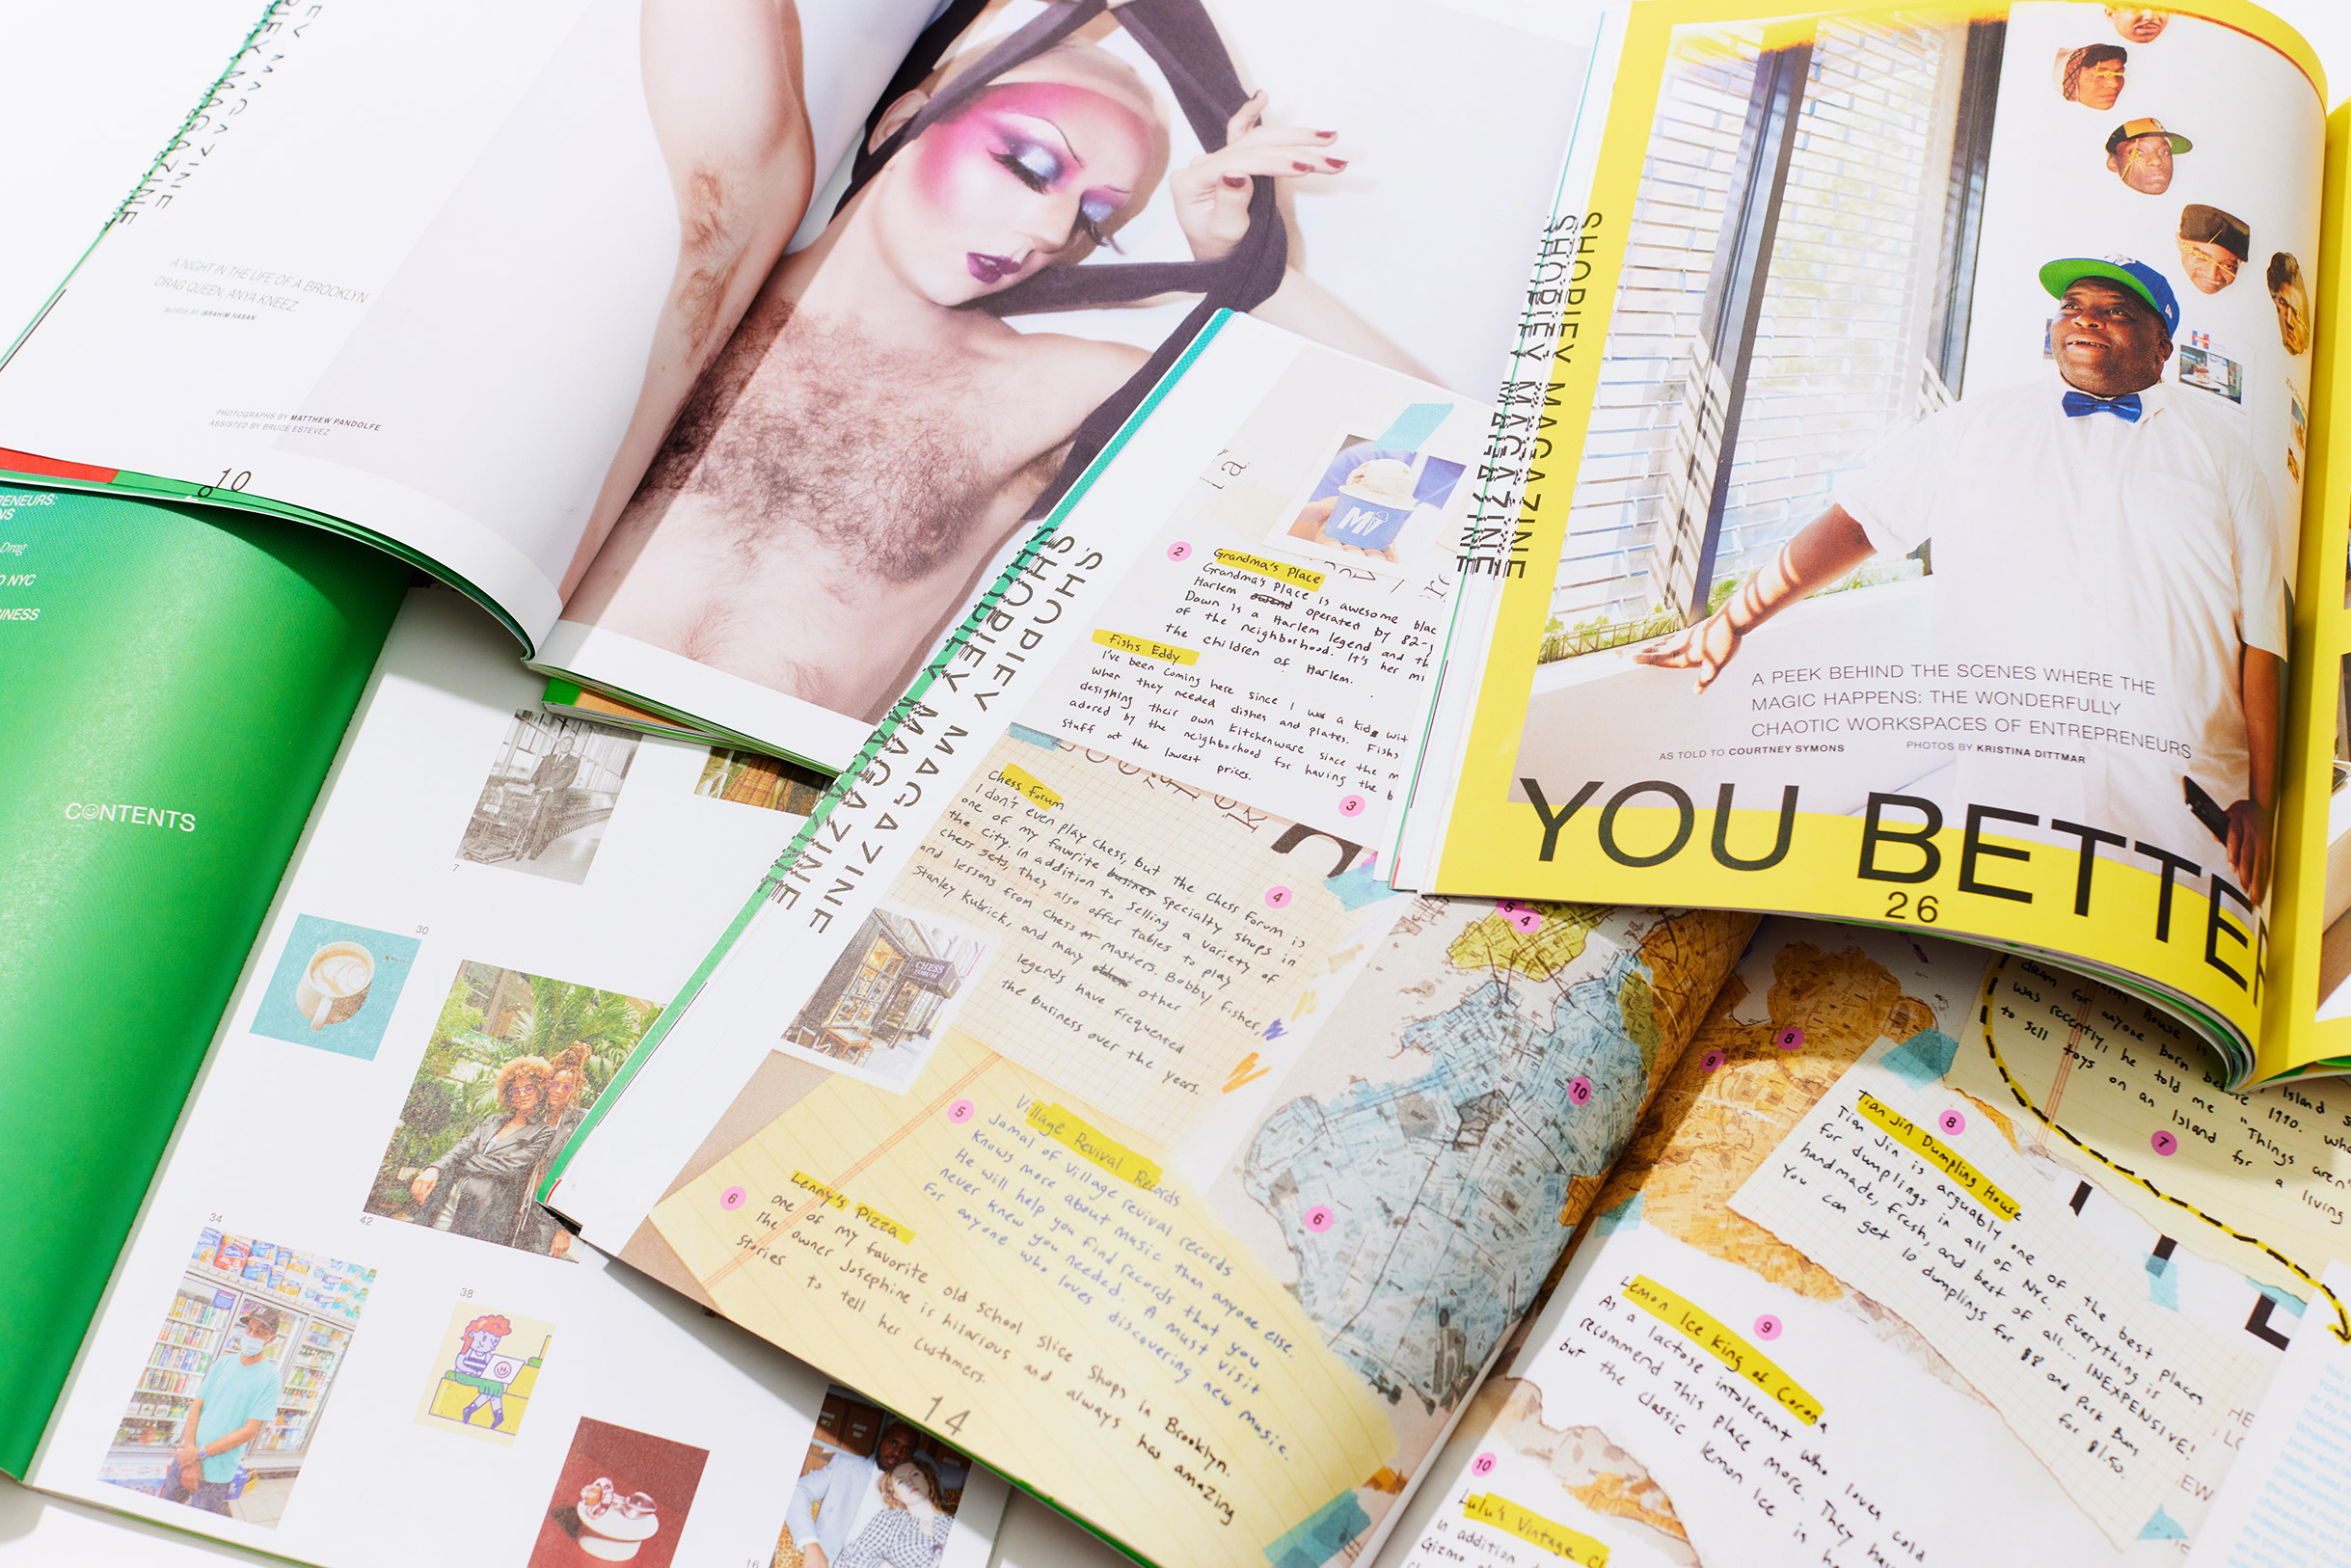 SHOPIFY MAGAZINE
A NIGHT IN THE LIFE OF A BROOKLYN
DRAG QUEEN, ANYA KNEEZ.
WORDS BY IBRAHIM HASAN
PHOTOGRAPHS BY MATTHEW PANDOLFE
ASSISTED BY BRUCE ESTEVEZ
10
RENEURS:
NS
Drag
D NYC
INESS
CONTENTS
7
30
42
34
38
16
SHOPIFY MAGAZINE
SHOPIFY MAGAZINE
2
Grandma's Place
Grandma's Place is awesome blac
Harlem owend operated by 82-y
Dawn is a Harlem legend and th
of the neighborhood. It's her mi
the children of Harlem.
Fishs Eddy
I've been coming here since I was a kid, wit
when they needed dishes and plates. Fishs
designing their own kitchenware since the m
adored by the neighborhood for having the b
stuff at the lowest prices.
3
Chess Forum
I don't even play chess, but the Chess Forum is
one of my favorite busines specialty shops in
the city. In addition to selling a variety of
chess sets, they also offer tables to play
and lessons from Chess masters. Bobby Fisher,
Stanley Kubrick, and many other
legends have frequented
the business over the years.
4
CHESS
FORUM
5
Village Revival Records
Jamal of Village revival records
knows more about music than anyone else.
He will help you find records that you
never knew you needed. A must visit
for anyone who loves discovering new music.
6
Lenny's Pizza
One of my favorite old school slice shops in Brooklyn.
The owner Josephine is hilarious and always has amazing
stories to tell her customers.
14
5
4
10
6
9
8
SHOPIFY MAGAZINE
SHOPIFY MAGAZINE
A PEEK BEHIND THE SCENES WHERE THE
MAGIC HAPPENS: THE WONDERFULLY
CHAOTIC WORKSPACES OF ENTREPRENEURS
AS TOLD TO COURTNEY SYMONS
PHOTOS BY KRISTINA DITTMAR
YOU BETTER
26
was recently, he told me "Things aren'
to sell toys on an Island for a living
7
8
Tian Jin Dumpling House
Tian Jin is arguably one of the best places
for dumplings in all of NYC. Everything is
handmade, fresh, and best of all... INEXPENSIVE!
You can get 10 dumplings for $8 and Pork Buns
for $1.50.
9
Lemon Ice King of Corona
As a lactose intolerant who loves cold
recommend this place more. They hav
but the classic lemon Ice is
10
Lulu's Vintage
In addition
Gizmo